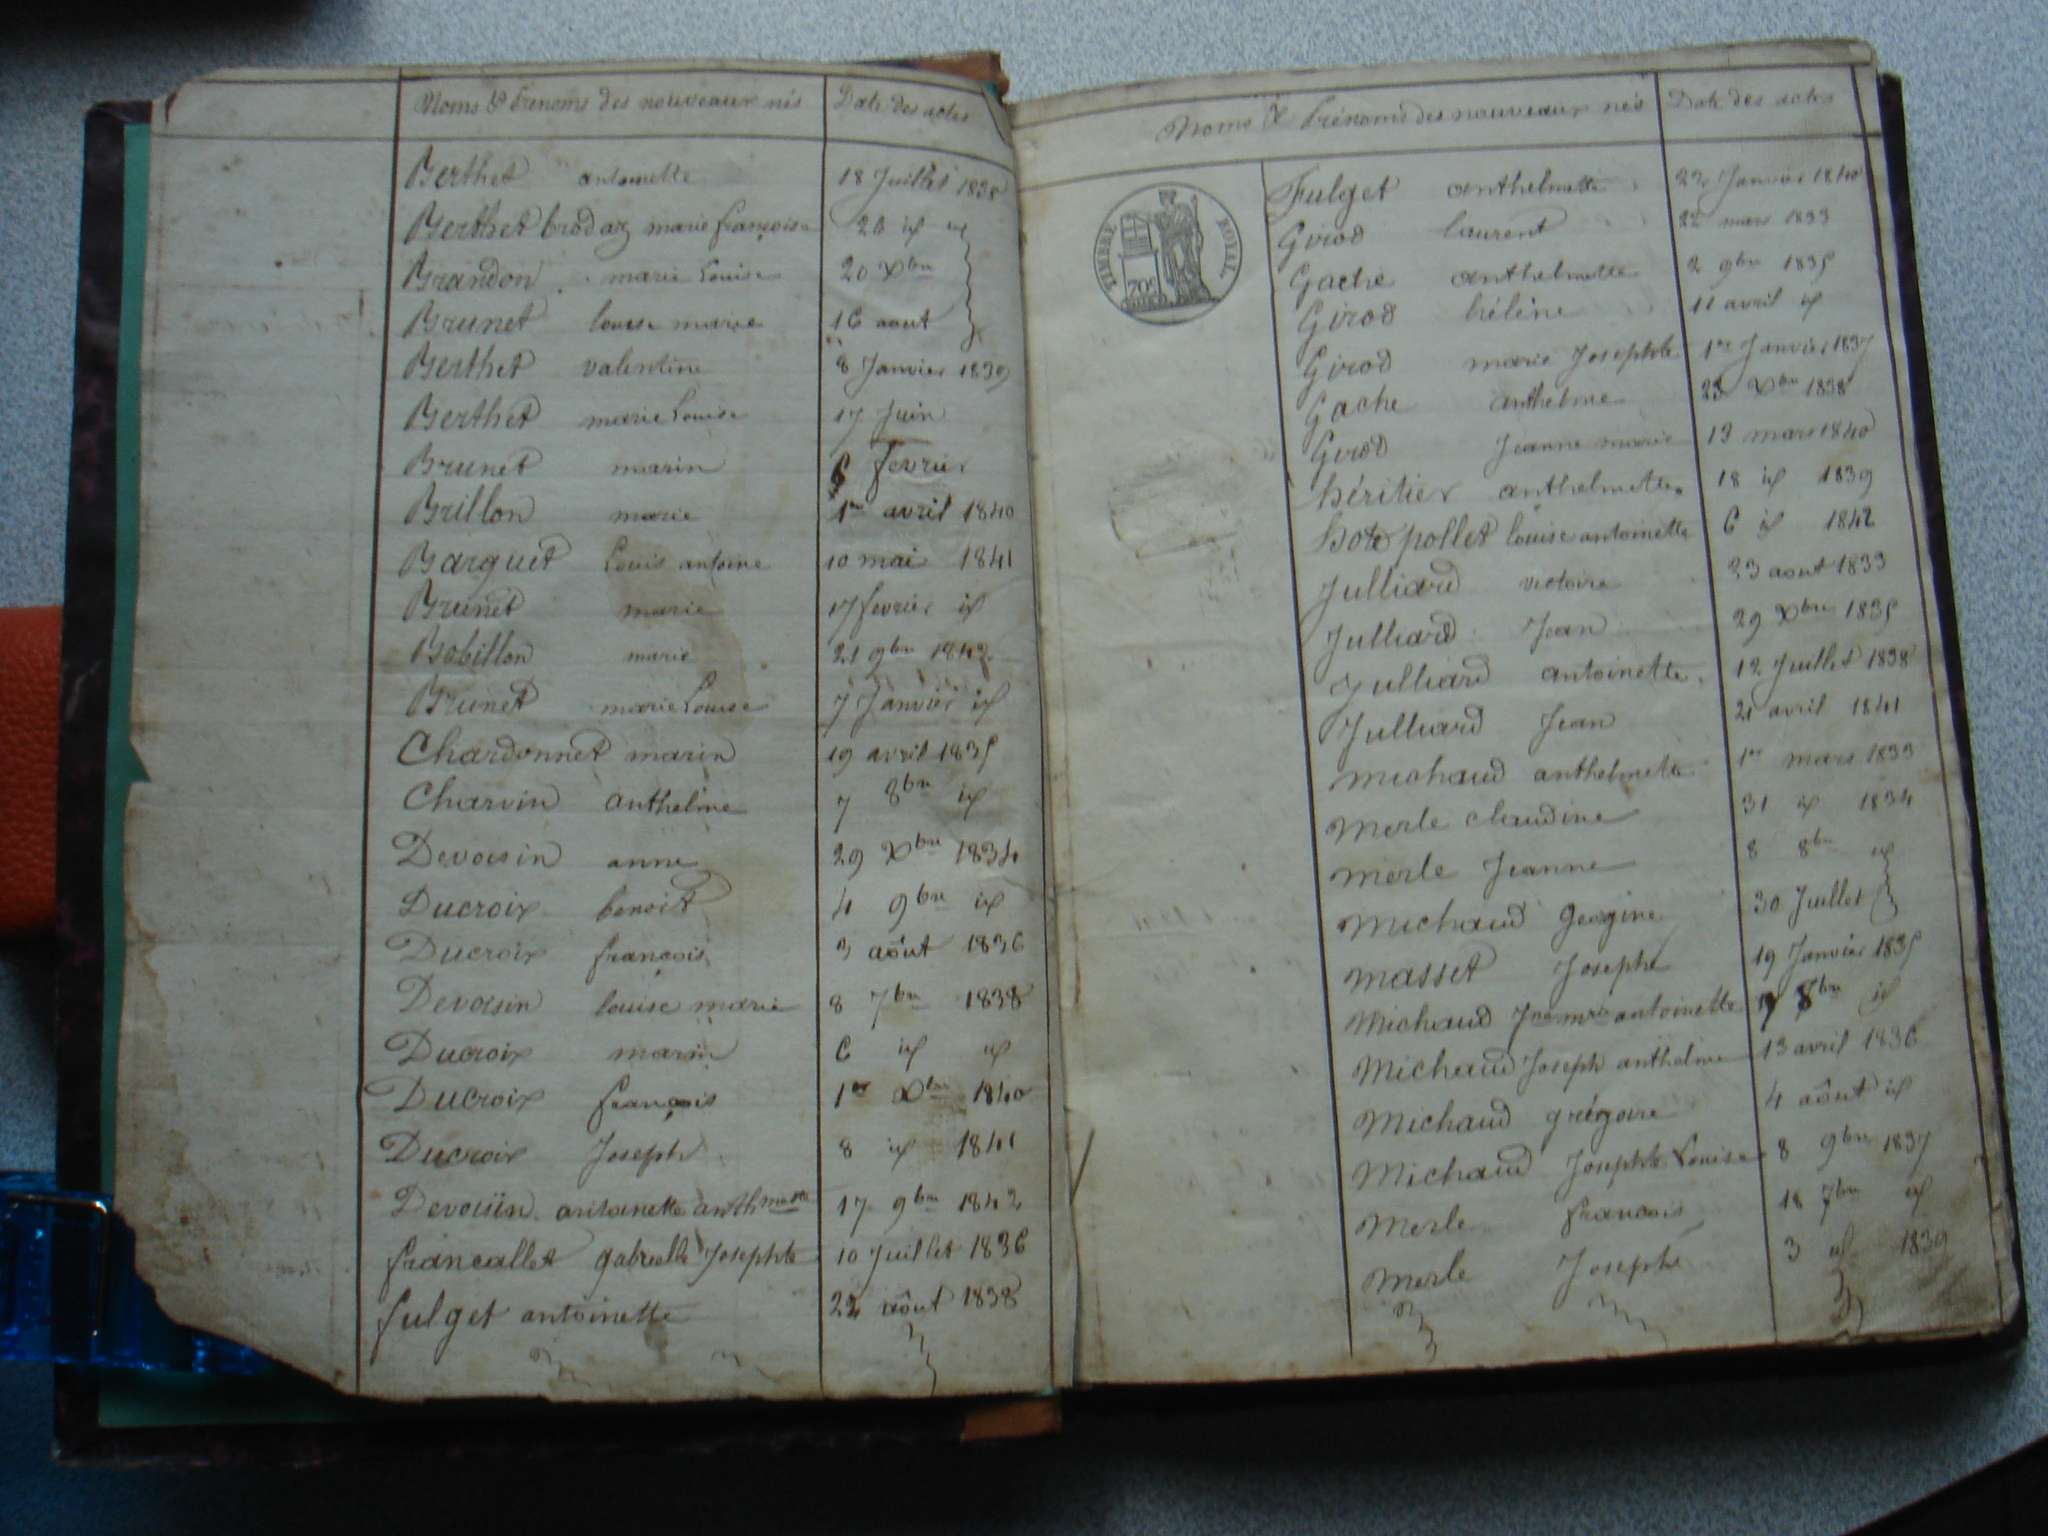 Noms & Prenoms des nouveaux nés Date des actes
Berthet antoinette 18 Juillet 1838
Berthet brodaz marie françoise 28 id id
Brandon marie Louise 20 Xbre
Brunet louise marie 16 aout
Berthet valentine 8 Janvier 1839
Berthet marie Louise 17 Juin
Brunet marin fevrier
Brillon marie 1er avril 1840
Barquet Louis antoine 10 mai 1841
Brunet marie 17 fevrier id
Bobillon marie 21 9bre 1842
Brunet marie Louise 7 Janvier id
Chardonnet marin 19 avril 1835
Charvin anthelme 7 8bre id
Devoisin anne 29 Xbre 1834
Ducroix benoit 4 9bre id
Ducroix françois 3 aôut 1836
Devoisin louise marie 8 7bre 1838
Ducroix marin 6 id id
Ducroix françois 1er Xbre 1840
Ducroix Joseph 8 id 1841
Devoisin antoinette anthmette 17 9bre 1842
francallet gabrielle Josephte 10 Juillet 1836
fulget antoinette 22 aôut 1838
Noms & Prénoms des nouveaux nés Date des actes
TIMBRE ROYAL
70c
Fulget anthelmette 22 Janvier 1840
Girod laurent 22 mars 1833
Gache anthelmette 2 9bre 1835
Girod hélène 11 avril id
Girod marie Josephte 1er Janvier 1837
Gache anthelme 23 Xbre 1838
Girod Jeanne marie 13 mars 1840
héritier anthelmette 18 id 1839
hote pollet louise antoinette 6 id 1842
Julliard victoire 23 aout 1833
Julliard Jean 29 Xbre 1835
Julliard antoinette 12 Juillet 1838
Julliard Jean 21 avril 1841
michaud anthelmette 1er mars 1833
merle claudine 31 id 1834
merle Jeanne 8 8bre id
michaud Georgine 30 Juillet
masset Josephe 19 Janvier 1835
Michaud Jne mrie antoinette 17 8bre id
Michaud Joseph anthelme 13 avril 1836
Michaud grégoire 4 aôut id
Michaud Josephte Louise 8 9bre 1837
Merle francois 18 7bre id
Merle Josephe 3 id 1839